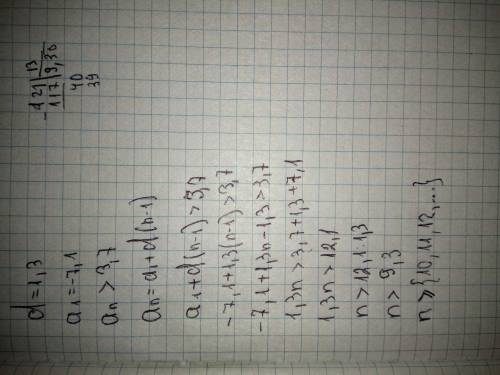 d=1,3
a1=-7,1
an>3,7
an=a1+d(n-1)
a1+d(n-1)>3,7
-7,1+1,3(n-1)>3,7
-7,1+1,3n-1,3>3,7
1,3n>3,7+1,3+7,1
1,3n>12,1
n>12,1:1,3
n>9,3
n≥{10,11,12,...}
-121|13
117|9,30
40
39